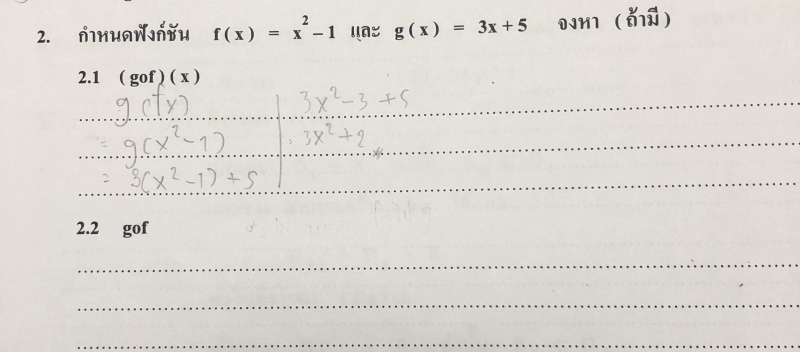 2. กำหนดฟังก์ชัน f ( x ) = x² – 1 และ g ( x ) = 3x + 5 จงหา ( ถ้ามี )
2.1 ( gof ) ( x )
g(fx)
= g(x²-1)
= 3(x²-1)+5
3x²-3+5
: 3x²+2
2.2 gof